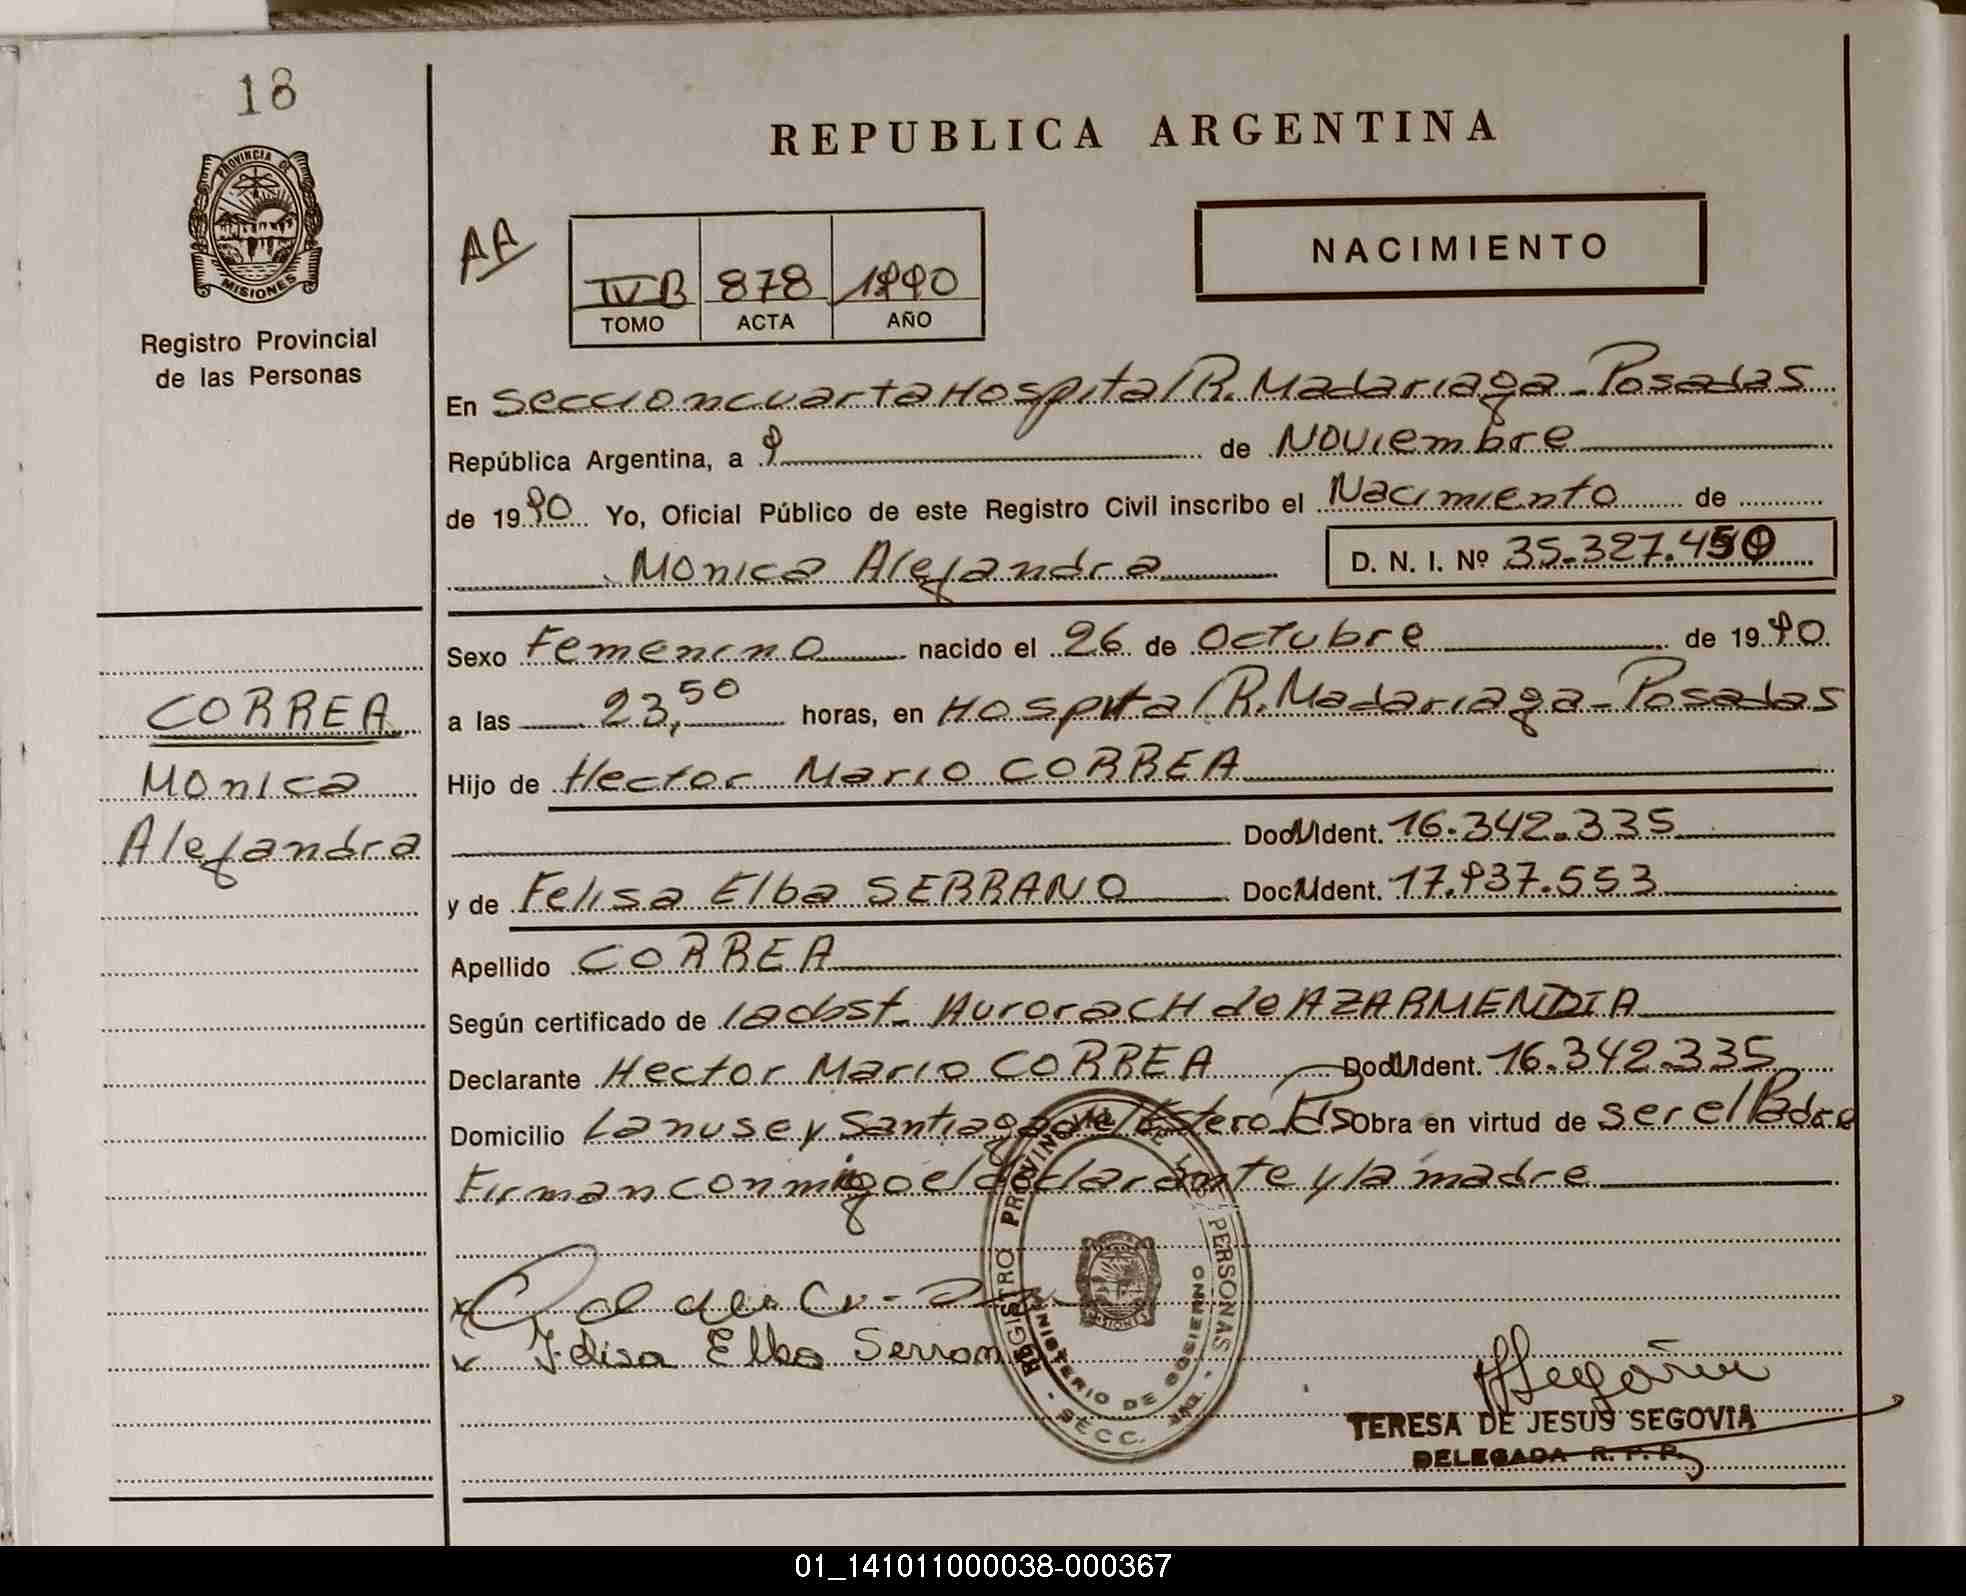 18
REPUBLICA ARGENTINA
PROVINCIA DE
MISIONES
Registro Provincial
de las Personas
AA
IV B 878 1990
TOMO ACTA AÑO
NACIMIENTO
En Seccion cuarta Hospital R. Madariaga - Posadas
República Argentina, a 9 de Noviembre
de 1990 Yo, Oficial Público de este Registro Civil inscribo el Nacimiento de
Monica Alejandra
D. N. I. Nº 35.327.4
Sexo Femenino nacido el 26 de Octubre de 1990
a las 23,50 horas, en Hospital R. Madariaga - Posadas
CORREA
Monica
Alejandra
Hijo de Hector Mario CORREA
Doc. Ident. 16.342.335
y de Felisa Elba SERRANO Doc. Ident. 17.937.553
Apellido CORREA
Según certificado de la obst. Aurora CH de AZARMENDIA
Declarante Hector Mario CORREA Doc. Ident. 16.342.335
Domicilio Lanuse y Santiago del Estero Pds Obra en virtud de ser el Padre
Firman conmigo el declarante y la madre
Felisa Elba Serrano
REGISTRO PROVINCIAL DE LAS PERSONAS
MINISTERIO DE GOBIERNO
SECC. 4ta.
TERESA DE JESUS SEGOVIA
DELEGADA R. P. P.
01_141011000038-000367